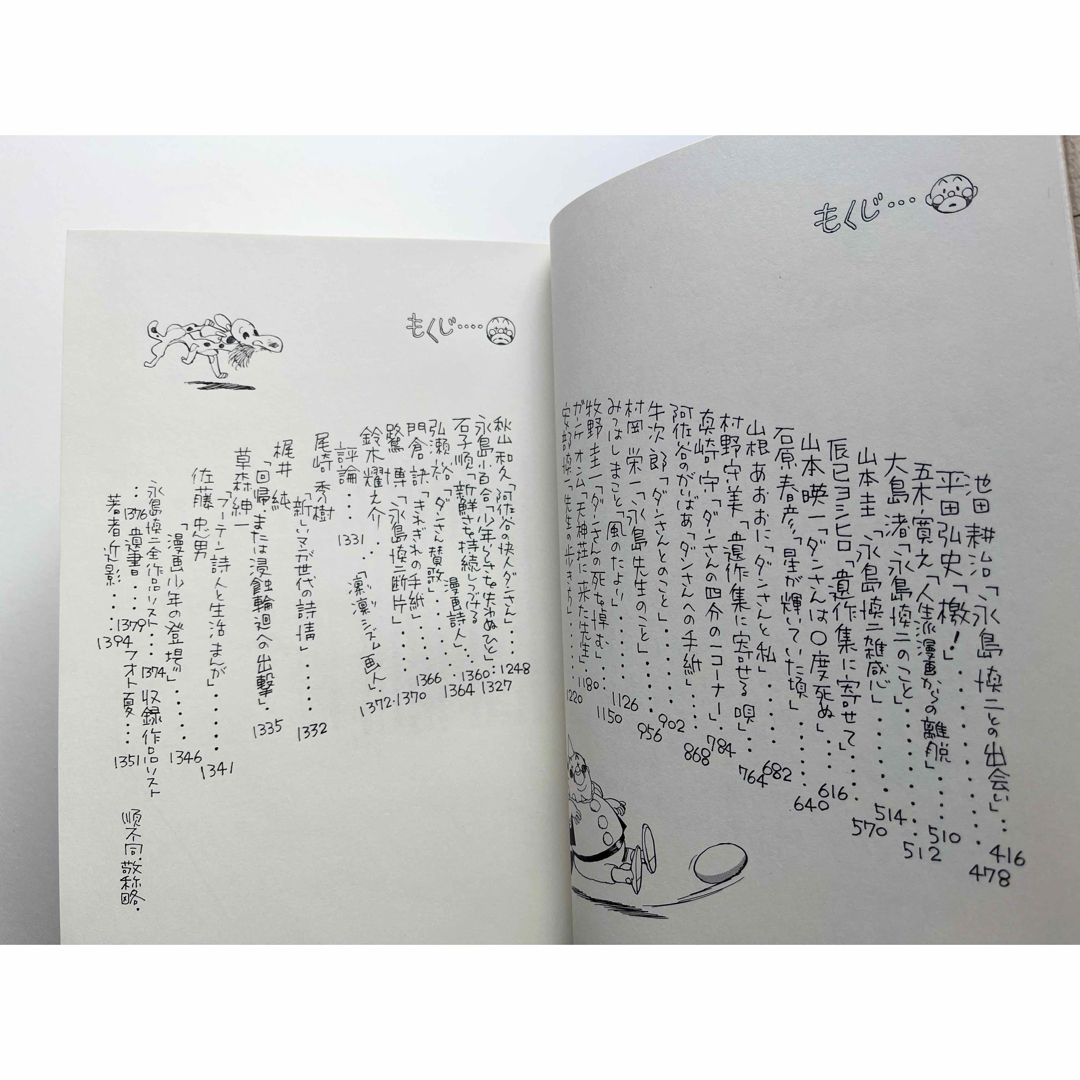 もくじ…
池田耕治「永島慎二との出会い」‥416
平田弘史「檄!」‥‥‥478
五木・貫え「人生派漫画からの離脱」‥510
大島渚「永島慎二のこと」‥‥512
山本圭「永島慎二雑感心」‥‥514
辰巳ヨシヒロ「遺作集に寄せて」‥570
山本暎一「ダンさんは〇度死ぬ」‥616
石原春彦「星が輝いていた頃」‥640
山根あおおに「ダンさんと私」‥682
村野守美「遺作集に寄せる唄」‥764
真崎守「ダンさんの四分の一コーナー」‥784
阿佐谷のがいばあ「ダンさんへの手紙」‥868
牛次郎「ダンさんとのこと」‥902
村岡栄一「永島先生のこと」‥956
みつはしまこと「風のたより」‥1126
牧野圭一「ダンさんの死を悼む」‥1150
ガンケオンム「天神荘に来た先生」‥1180
安部慎一「先生の歩き方」‥1220
もくじ‥‥
秋山和久「阿佐谷の快人ダンさん」‥1248
永島小百合「少年らさを失わぬひと」‥1327
石子順「新鮮さを持続しつづける漫画詩人」‥1360
弘瀬裕「ダンさん賛歌」‥‥1364
門倉訣「きれぎれの手紙」‥‥1366
鷺博「永島慎二断片」‥‥1370
鈴木耀之介「凛凛シズム画人」‥1372
評論‥‥1331
尾崎秀樹
「新しいマンガ世代の詩情」‥‥1332
梶井純
「回帰・または浸蝕輪廻への出撃」‥1335
草森紳一
「アーテン詩人と生活まんが」‥‥1341
佐藤忠男
「漫画少年の登場」‥‥1346
永島慎二全作品リスト‥1374 収録作品リスト
‥1376 遺書‥‥1379 フォト夏‥‥1351
著者近影‥‥1394
順不同・敬称略・